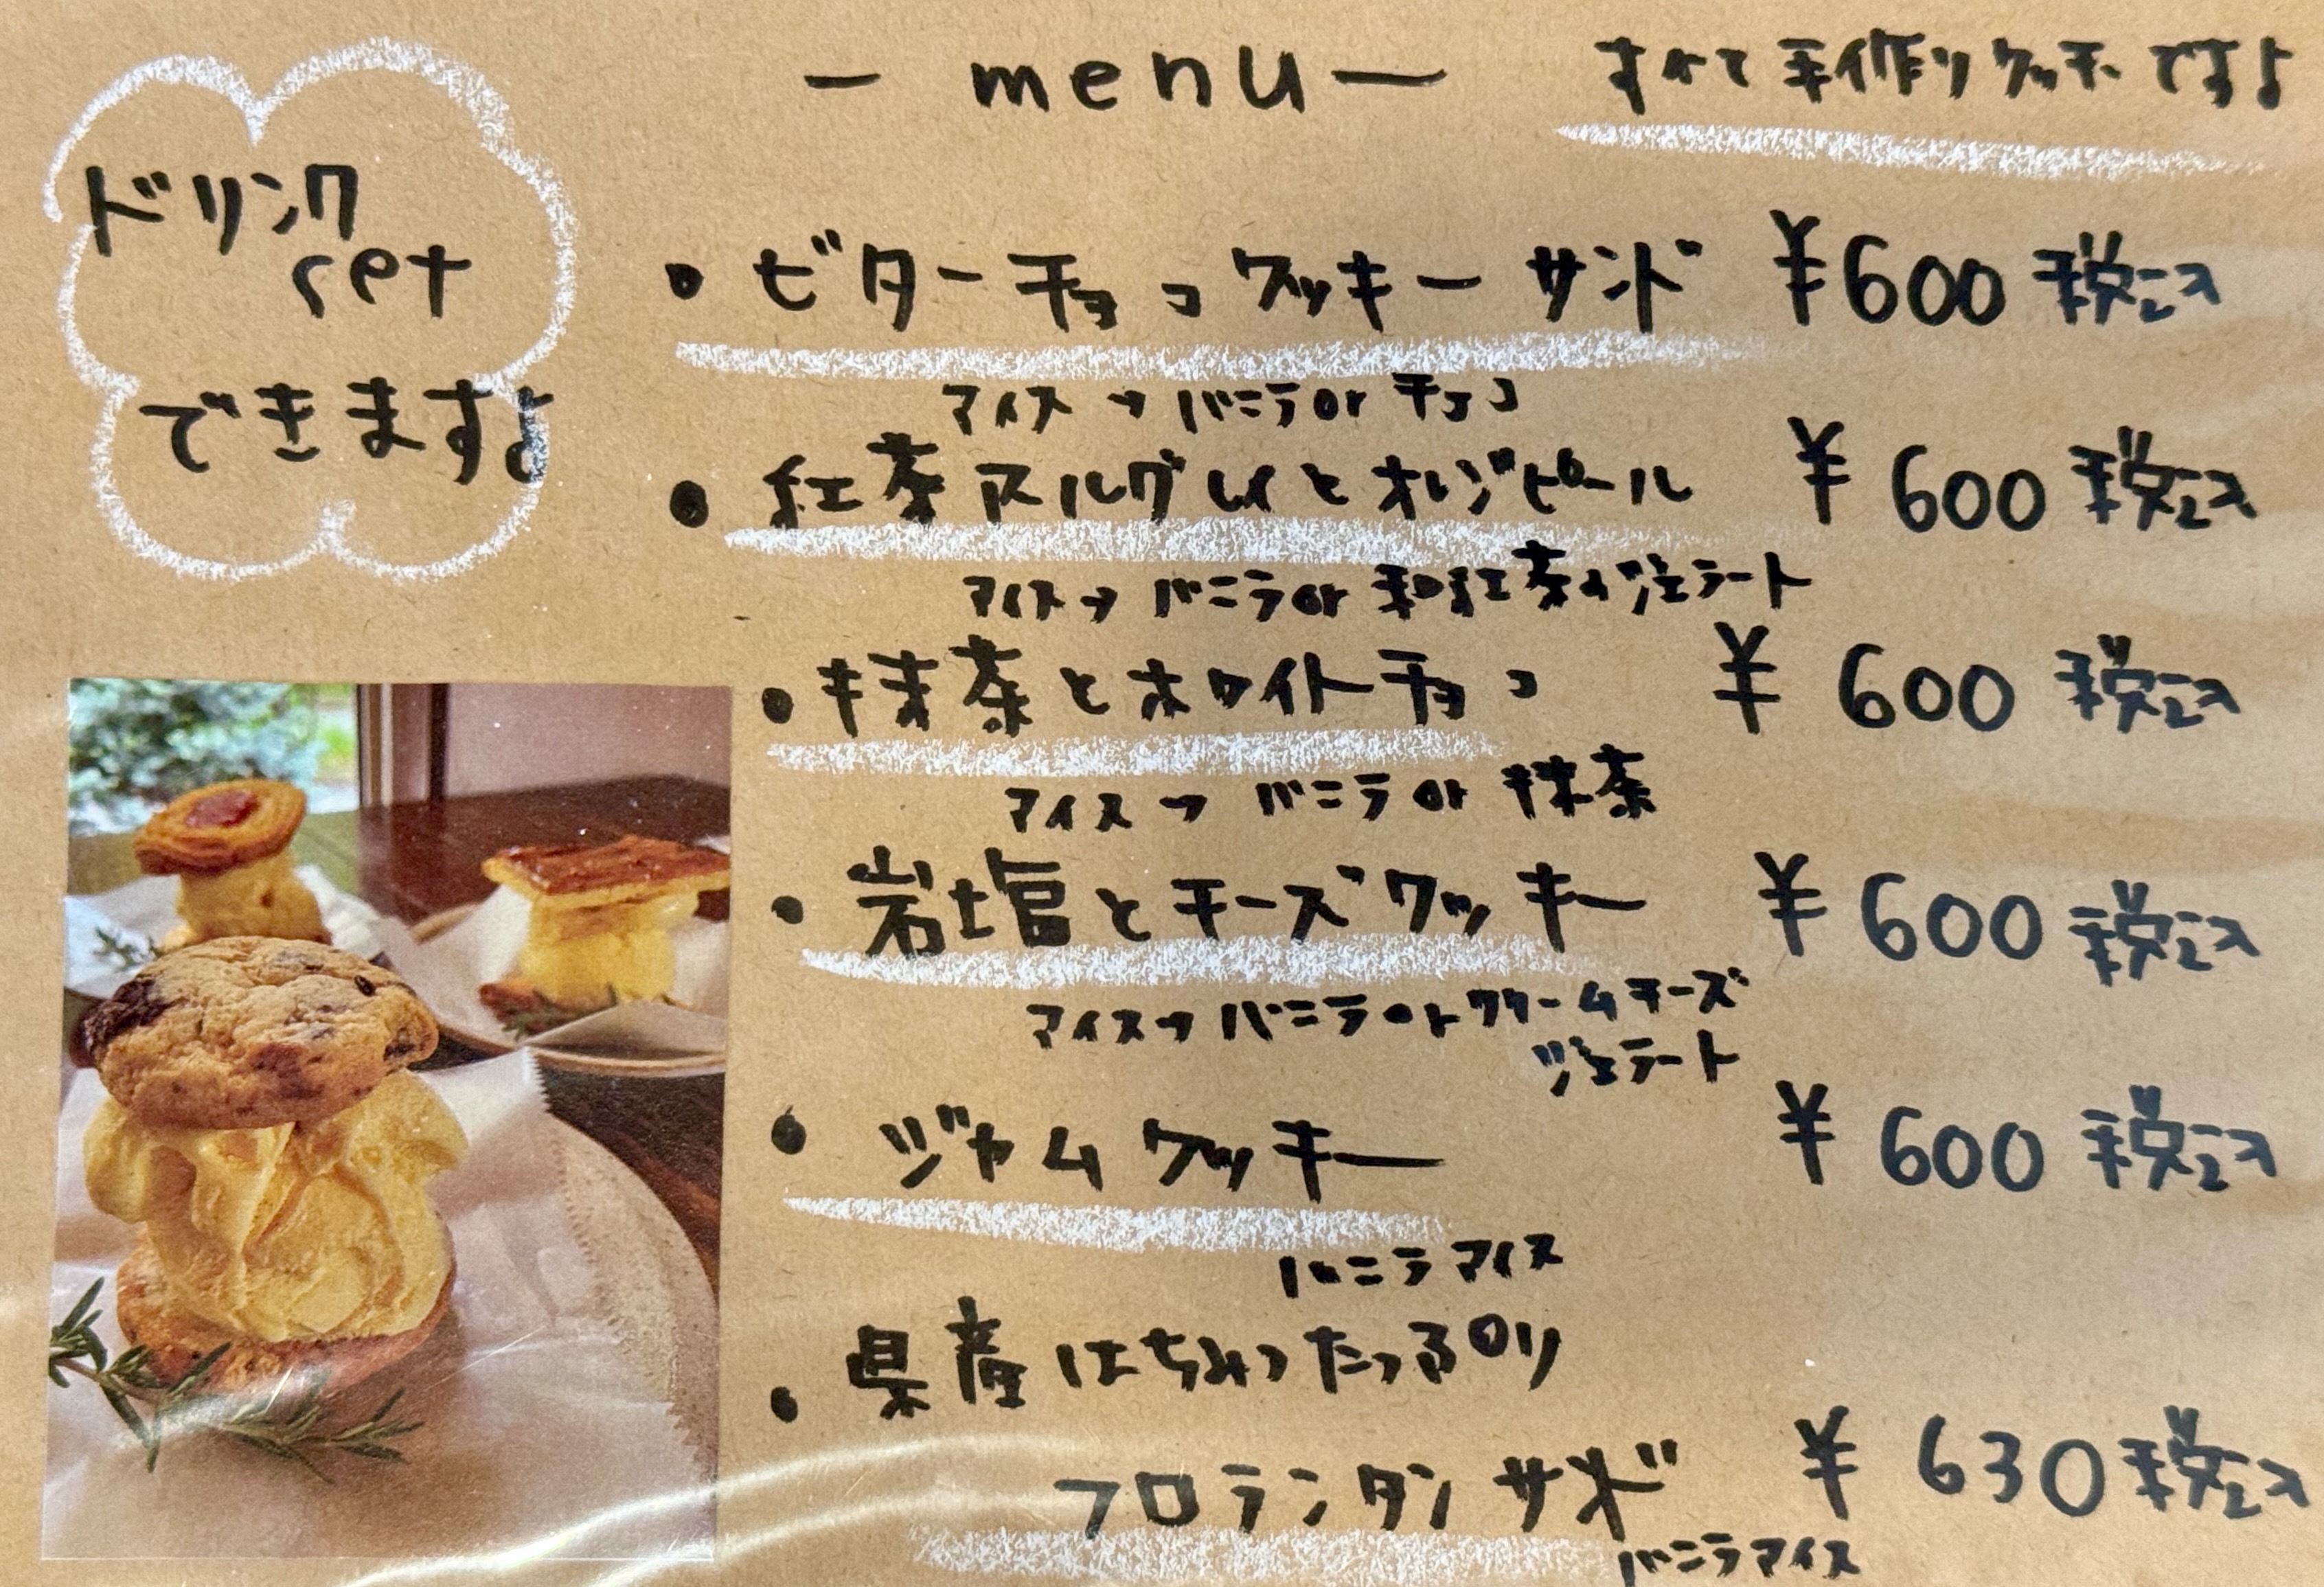 ー menu ー
すべて手作りクッキーですよ
ドリンク
set
できますよ
• ビターチョコクッキーサンド ¥600 税込
アイス → バニラor チョコ
• 紅茶アールグレイとオレンジピール ¥600 税込
アイス → バニラor 和紅茶のジェラート
• 抹茶とホワイトチョコ ¥600 税込
アイス → バニラor 抹茶
• 岩塩とチーズクッキー ¥600 税込
アイス → バニラorクリームチーズ
ジェラート
• ジャムクッキー ¥600 税込
バニラアイス
• 県産はちみつたっぷり
フロランタンサンド ¥630 税込
バニラアイス